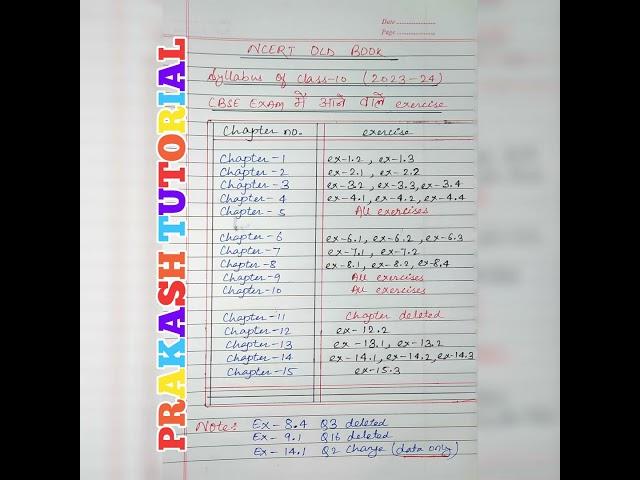 PRAKASH TUTORIAL
Date
Page
NCERT OLD BOOK
Syllabus of Class-10 (2023-24)
CBSE EXAM में आने वाले exercise
Chapter no. exercise
Chapter-1 ex-1.2, ex-1.3
Chapter-2 ex-2.1, ex-2.2
Chapter-3 ex-3.2, ex-3.3, ex-3.4
Chapter-4 ex-4.1, ex-4.2, ex-4.4
Chapter-5 All exercises
Chapter-6 ex-6.1, ex-6.2, ex-6.3
Chapter-7 ex-7.1, ex-7.2
Chapter-8 ex-8.1, ex-8.2, ex-8.4
Chapter-9 All exercises
Chapter-10 All exercises
Chapter-11 Chapter deleted
Chapter-12 ex-12.2
Chapter-13 ex-13.1, ex-13.2
Chapter-14 ex-14.1, ex-14.2, ex-14.3
Chapter-15 ex-15.3
Note: Ex-8.4 Q3 deleted
Ex-9.1 Q16 deleted
Ex-14.1 Q2 Change (data only)